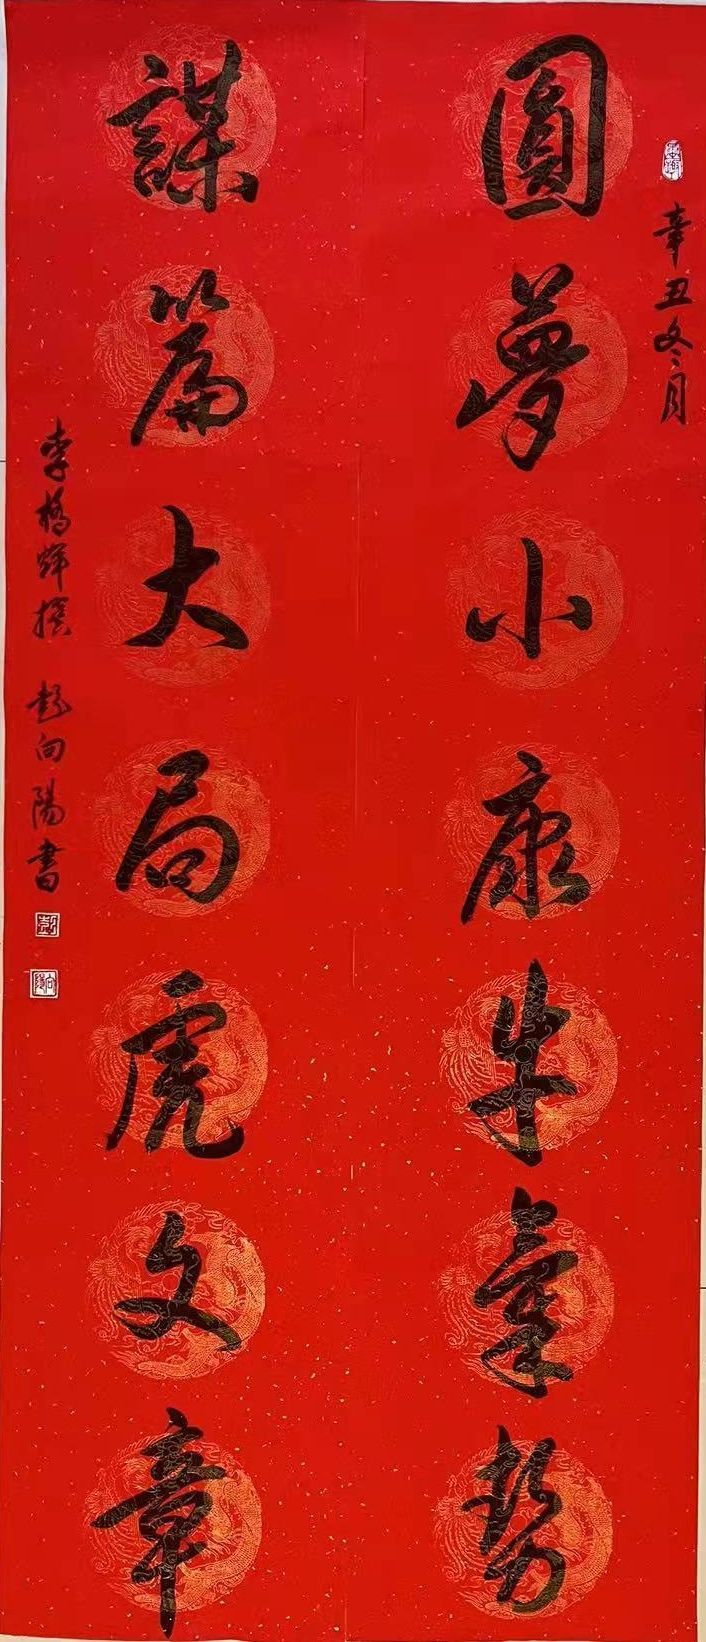 辛丑冬月
圓夢小康牛氣勢
謀篇大局虎文章
李橋輝撰 彭向陽書
彭
向陽